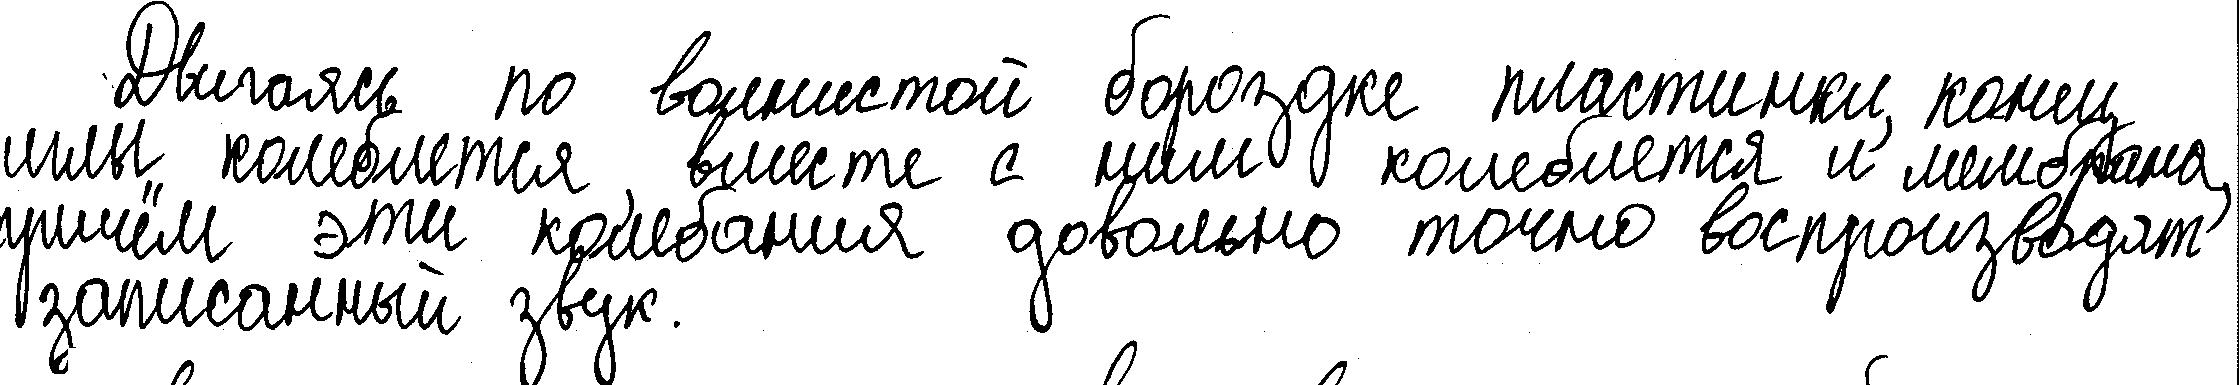 Двигаясь по волнистой бороздке пластинки, конец
иглы колеблется, вместе с ним колеблется и мембрана,
причём эти колебания довольно точно воспроизводят
записанный звук.